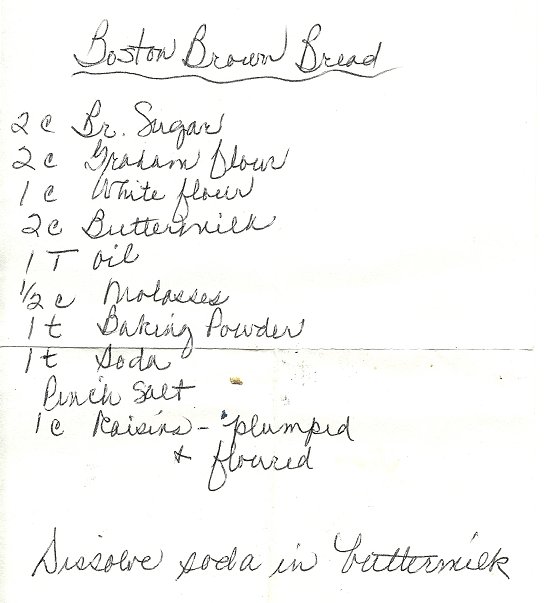 Boston Brown Bread
2 c Br. Sugar
2 c Graham flour
1 c White flour
2 c Buttermilk
1 T oil
1/2 c Molasses
1 t Baking Powder
1 t Soda
Pinch Salt
1 c Raisins - plumped
+ floured
Dissolve soda in buttermilk